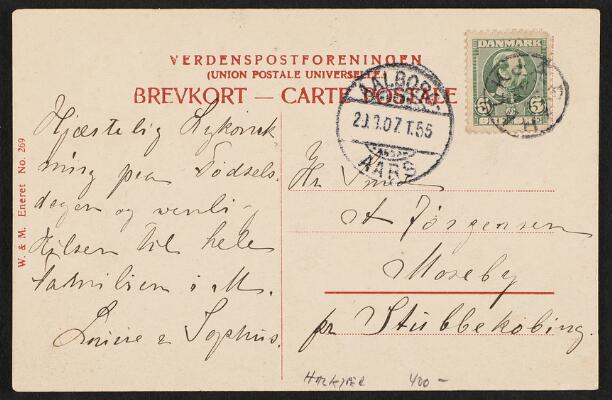 VERDENSPOSTFORENINGEN
(UNION POSTALE UNIVERSELLE)
BREVKORT — CARTE POSTALE
DANMARK
5 5
AALBORG
29.9.07. T.55
AARS
W. & M. Eneret No. 269
Hjærtelig Lykønsk
ning paa Fødsels
dagen og venli-
Hilsen til hele
familien i M.
Louise & Sophus.
Hr Smed
A Jørgensen
Moseby
pr Stubbekøbing.
HALKJÆR 400-